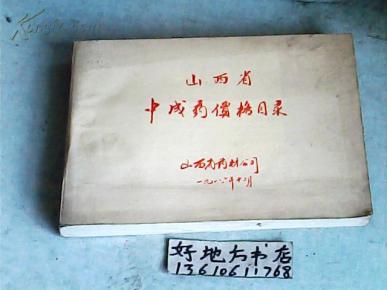 山西省
中成药價格目录
山西省药材公司
一九八六年十二月
好地方书店
13610611768